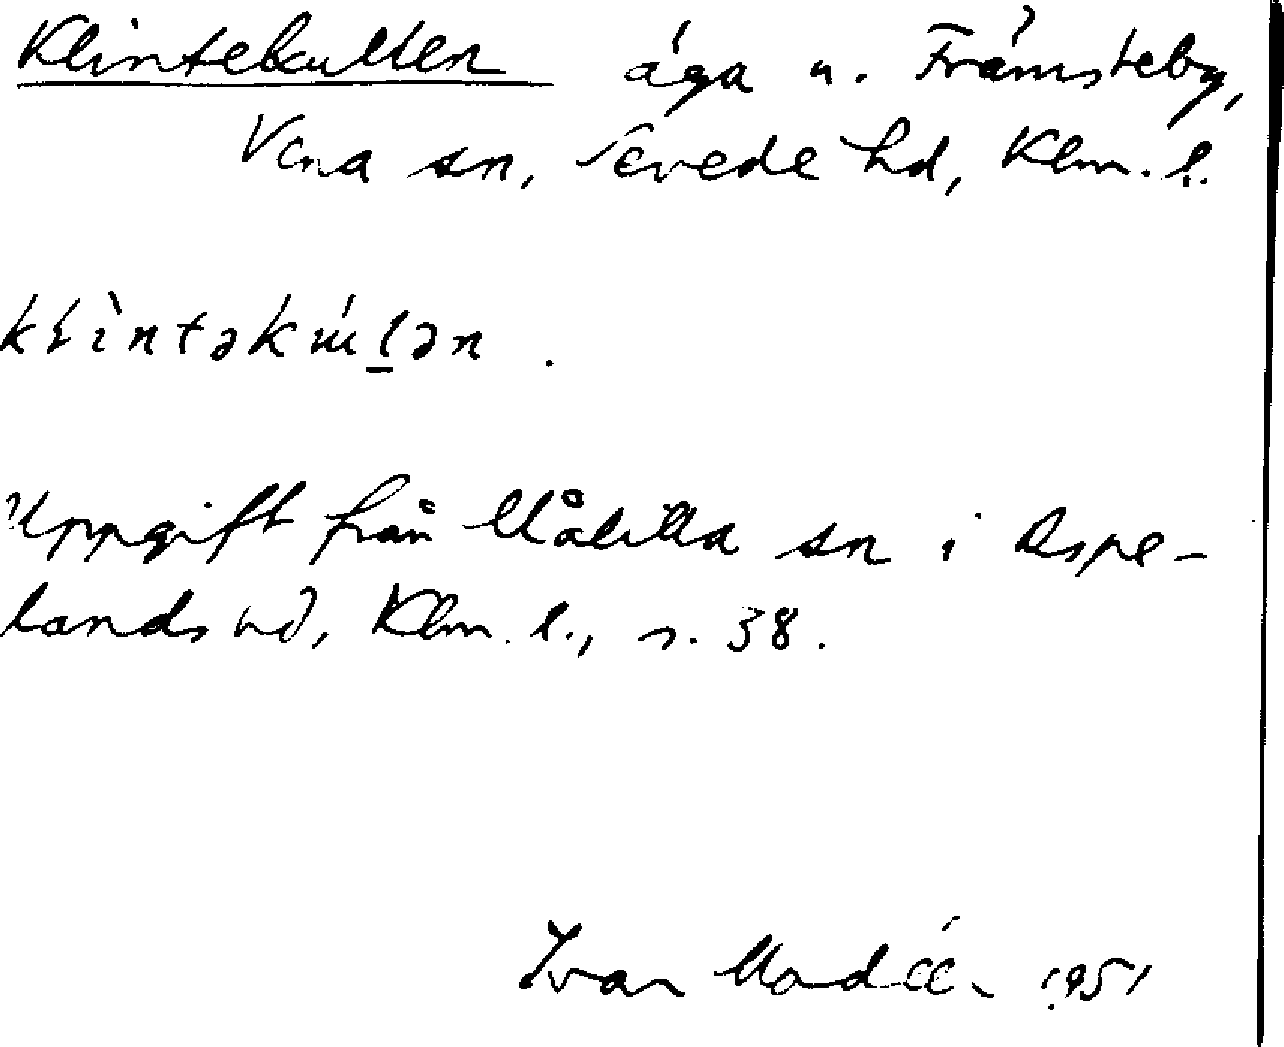 Klintekullen äga u. Främsteby,
Vena sn, Sevede hd, Klm. l.
Uppgift från Målilla sn i Aspe-
lands hd, Klm. l., s. 38.
Ivar Modéer 1951